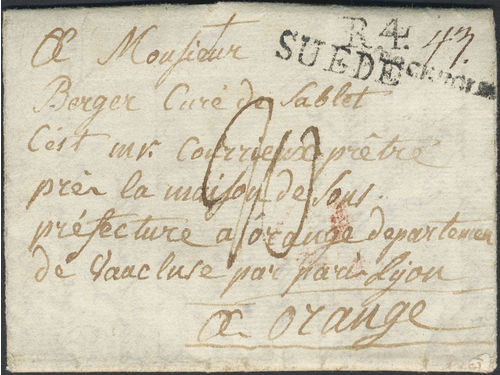 R.4.
SUEDE
43
A Monsieur
Berger Curé de Sablet
C'ést mr. Courrieux prêtre
près la maison de Sous
préfecture a órange departemen
de Vaucluse par paris Lyon
a orange